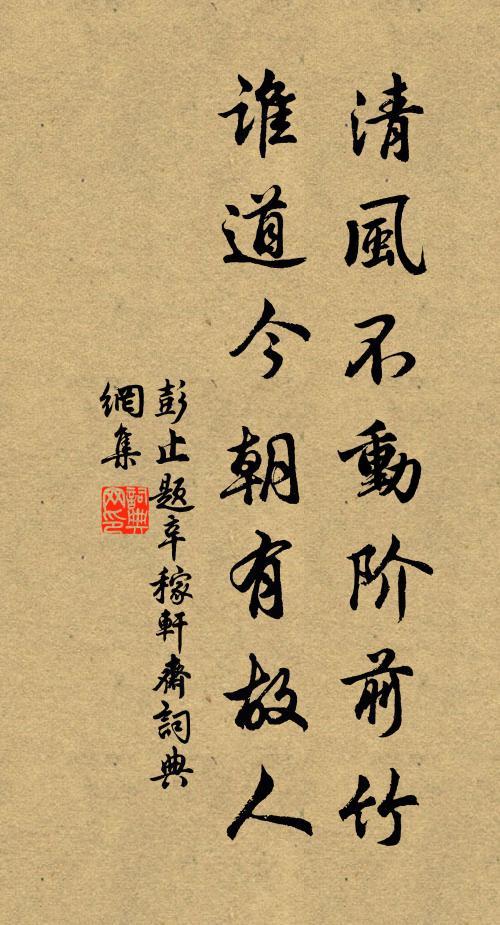 清風不動阶前竹
谁道今朝有故人
彭止题辛稼軒齋詞典
網集
詞典网印